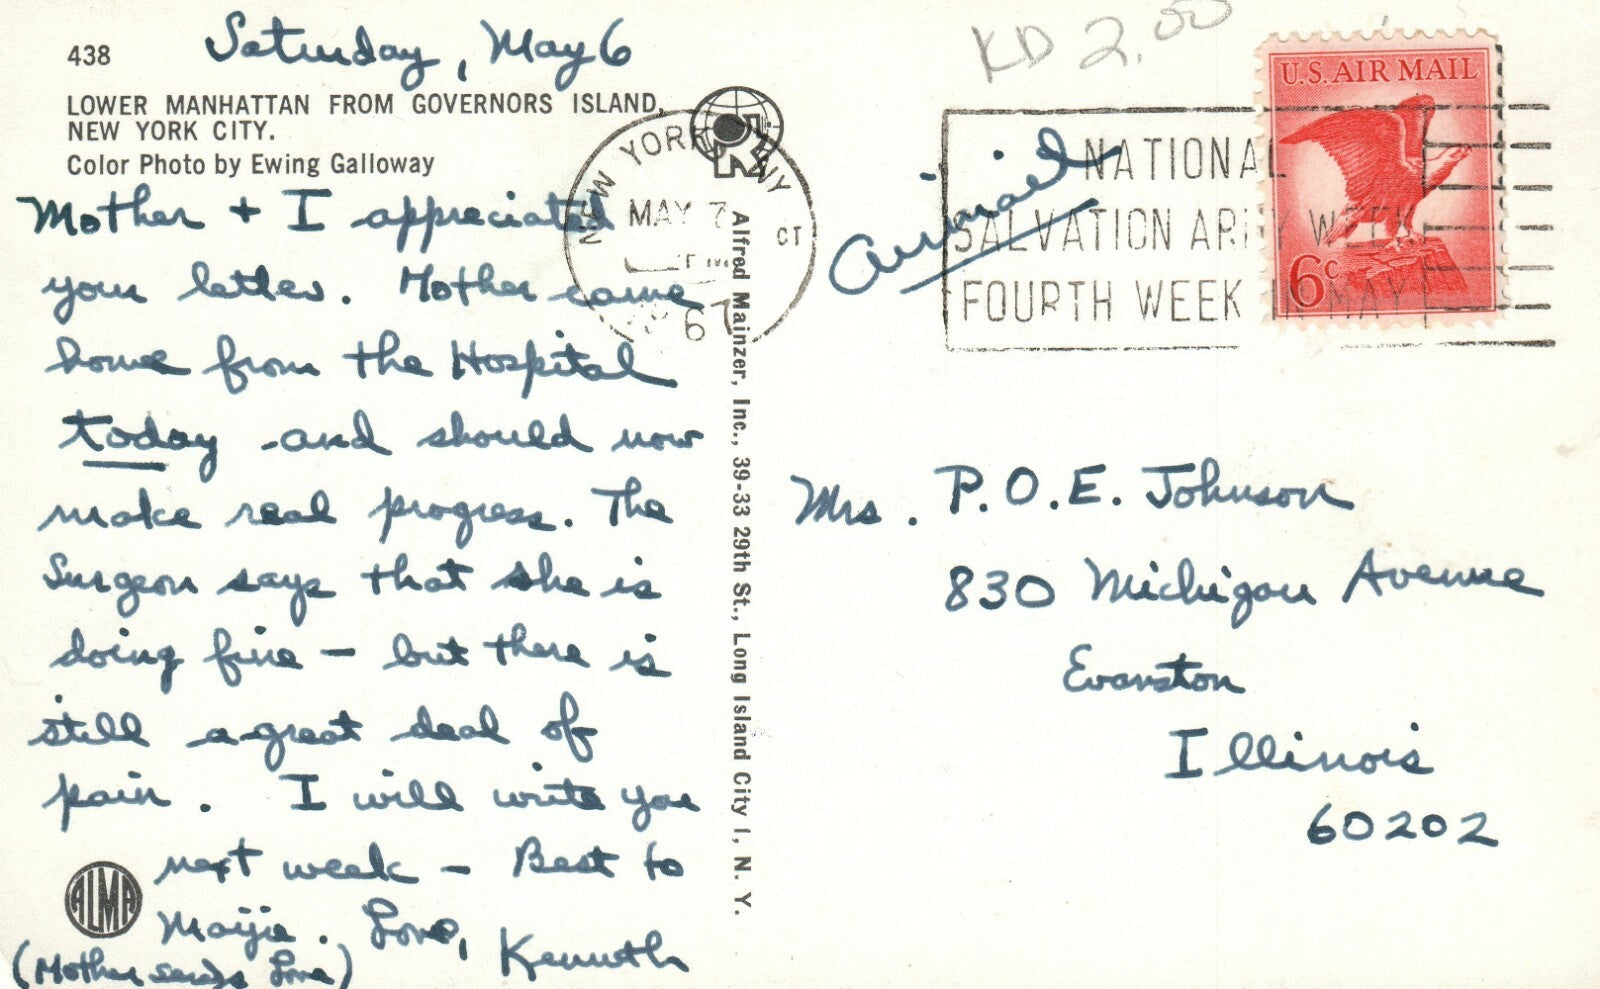 438
Saturday, May 6
LOWER MANHATTAN FROM GOVERNORS ISLAND,
NEW YORK CITY.
Color Photo by Ewing Galloway
Mother + I appreciated
your letter. Mother came
home from the Hospital
today and should now
make real progress. The
Surgeon says that she is
doing fine – but there is
still a great deal of
pain. I will write you
next week – Best to
Maijie. Love,
Kenneth
(Mother sends Love)
ALMA
Alfred Mainzer, Inc., 39-33 29th St., Long Island City 1, N. Y.
NEW YORK, NY
MAY 7
PM
6
CT
KD 2.00
airmail
NATIONAL
SALVATION ARMY WEEK
FOURTH WEEK IN MAY
U.S. AIR MAIL
6c
Mrs. P.O.E. Johnson
830 Michigan Avenue
Evanston
Illinois
60202